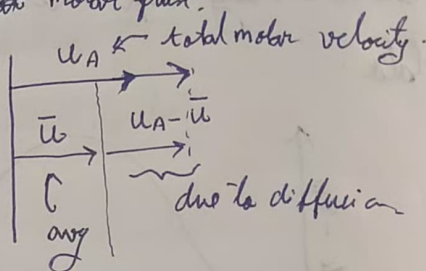 molar flux.
u_A ← total molar velocity.
ū u_A - ū
due to diffusion
avg